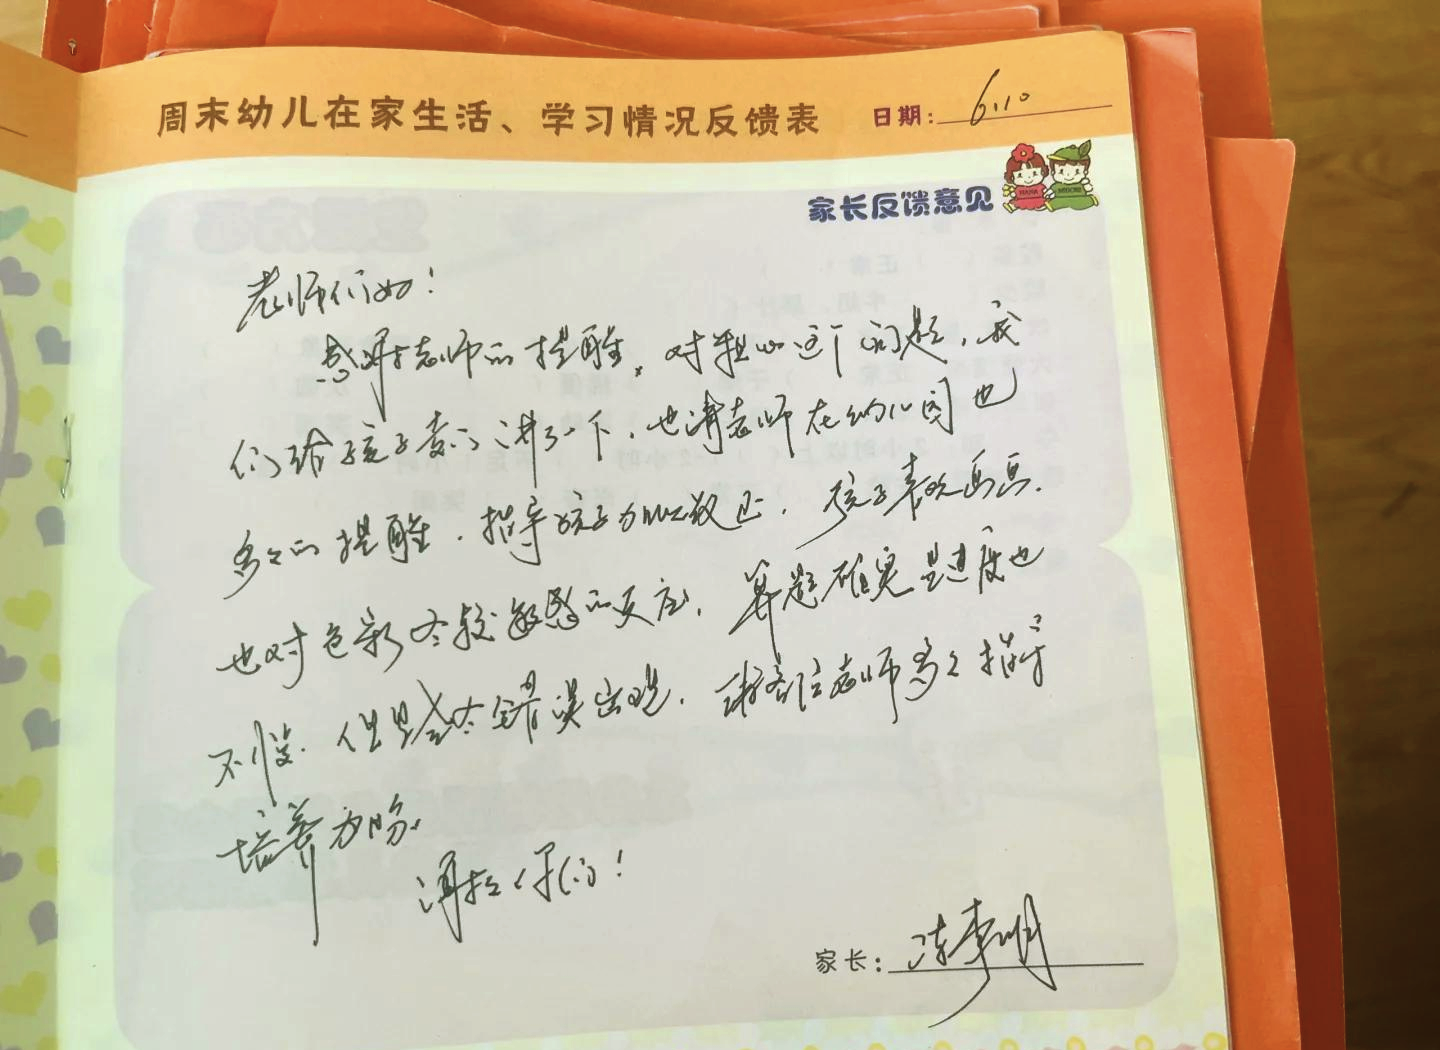 周末幼儿在家生活、学习情况反馈表 日期: 6.10
家长反馈意见
老师们好!
感谢老师的提醒,对粗心这个问题,我
们给孩子专门讲了一下,也请老师在幼儿园也
多多的提醒、指导孩子加以改正,孩子喜欢画画,
也对色彩有较敏感的反应,算题确实是速度也
不慢,但总会有错误出现,请各位老师多多指导
培养为盼。
谢谢你们!
家长: 李明